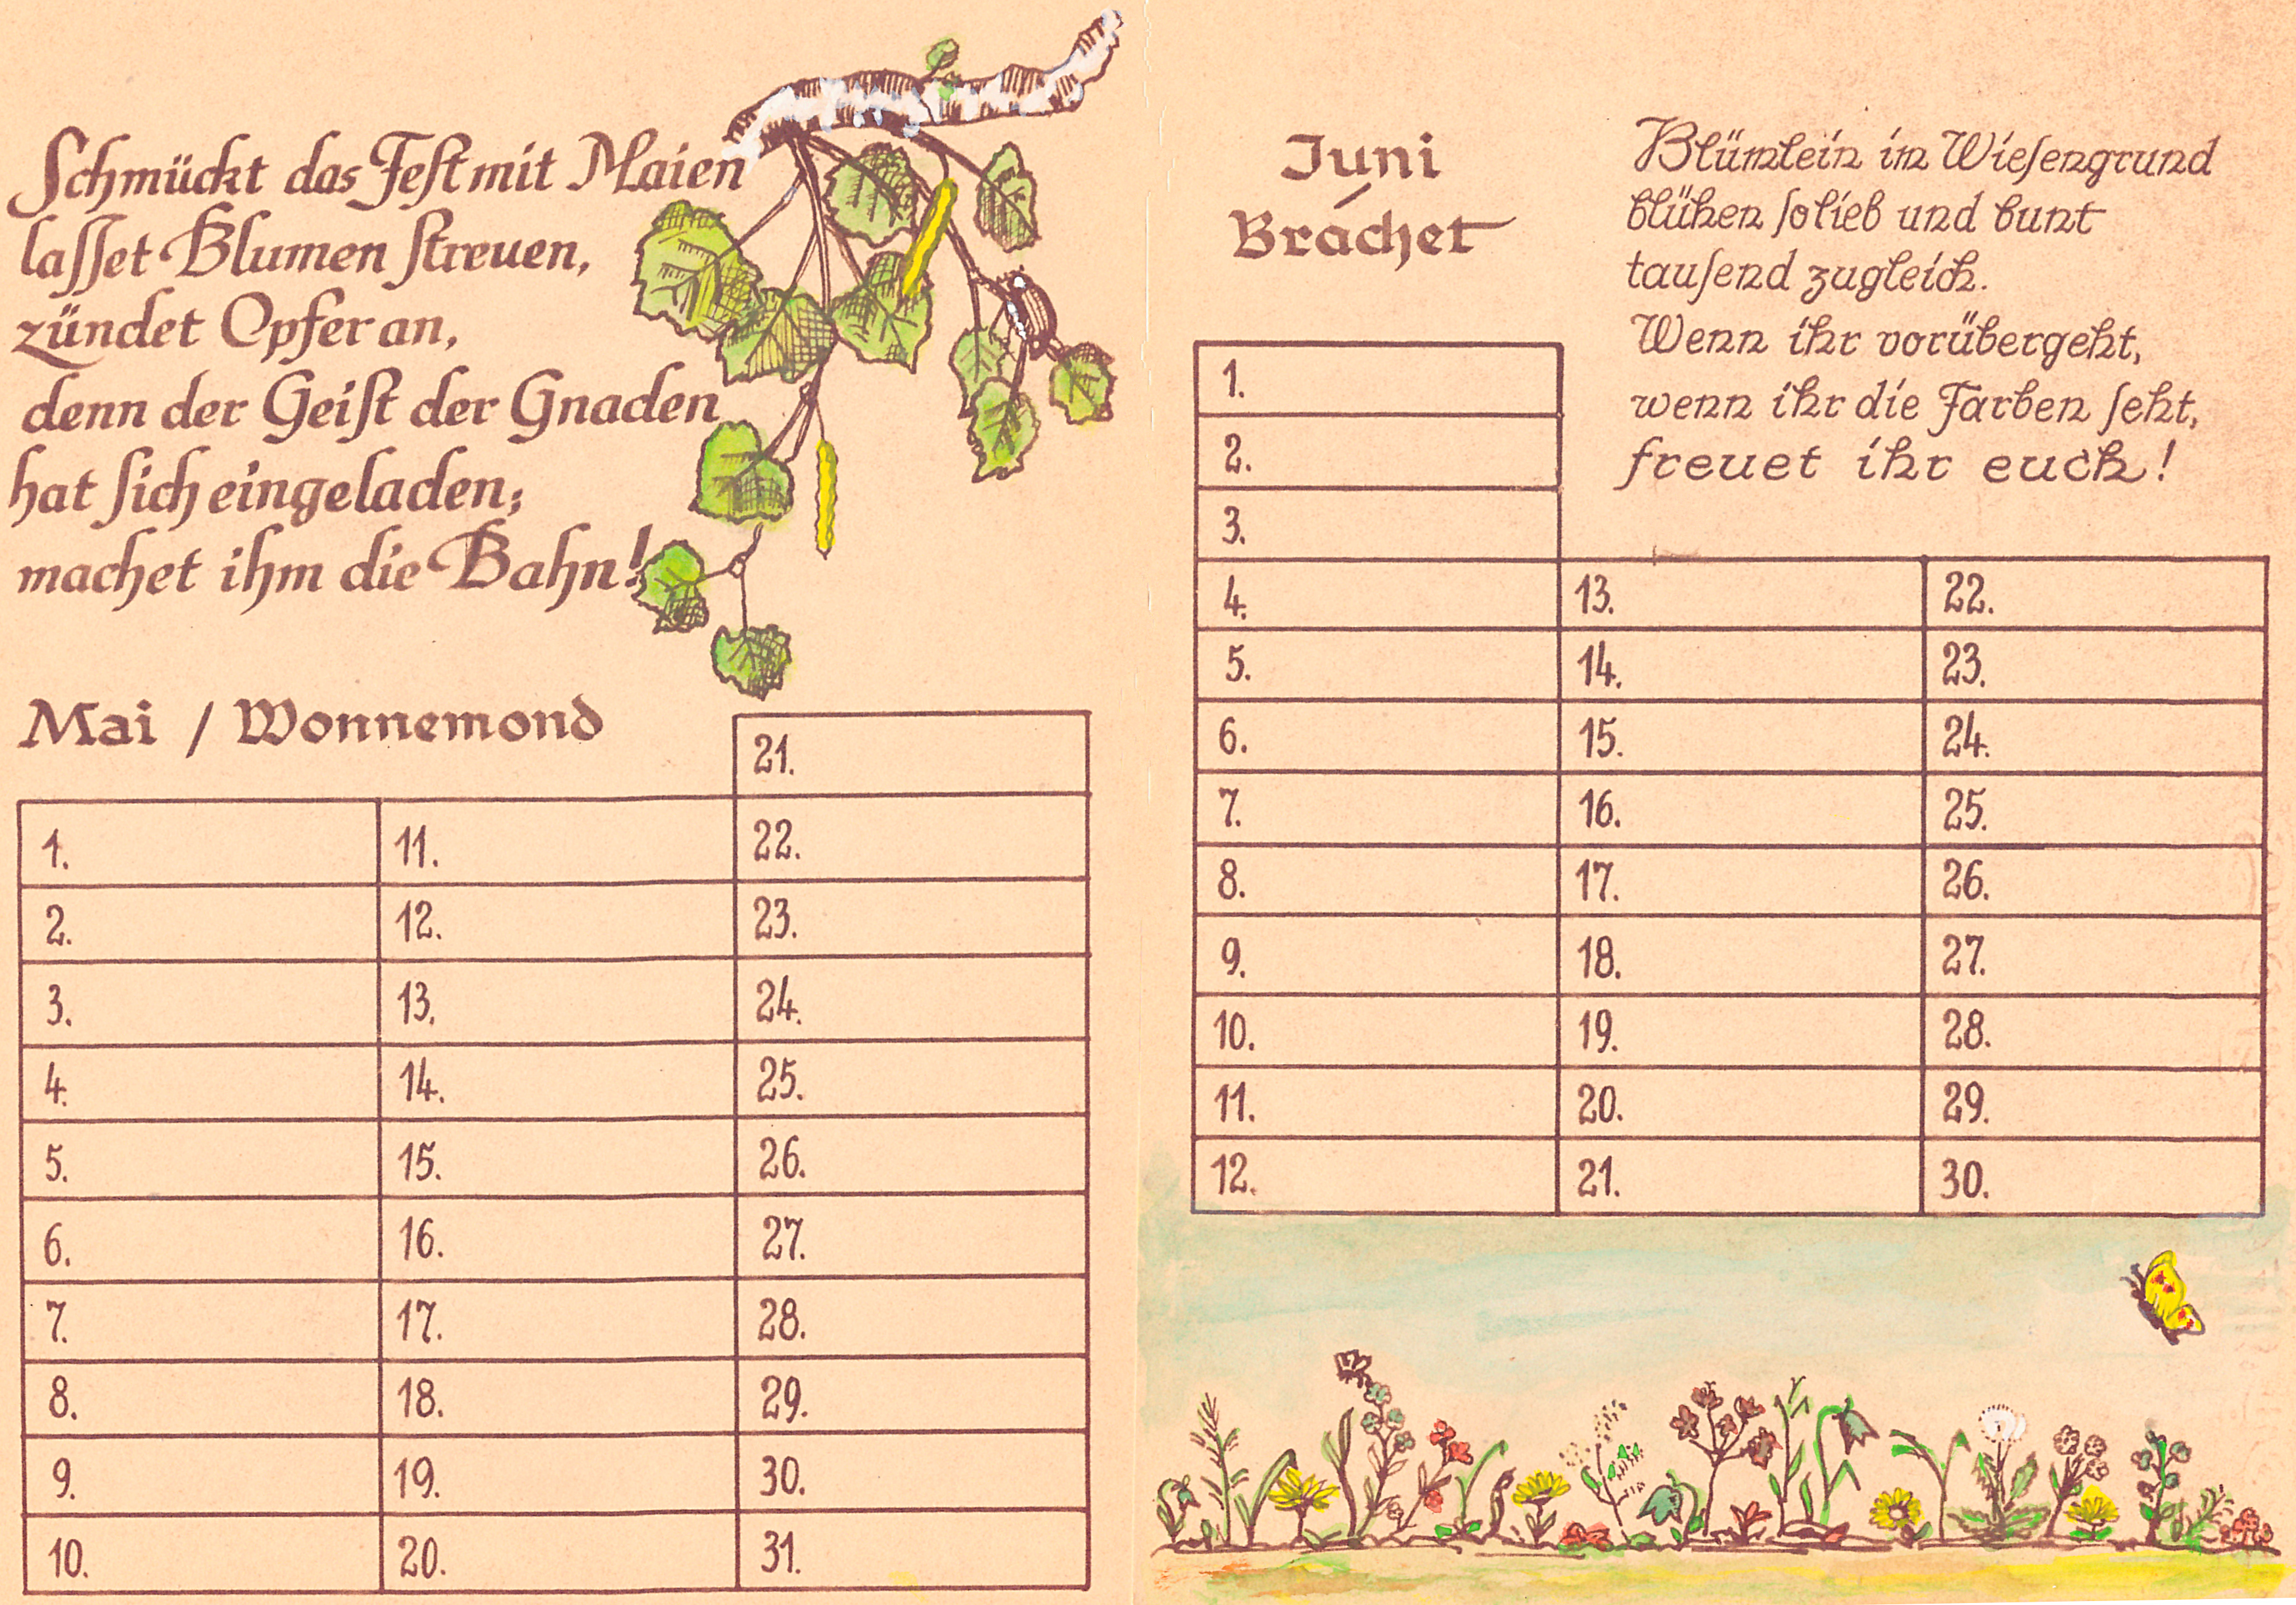 Schmückt das Fest mit Maien
lasset Blumen streuen,
zündet Opfer an,
denn der Geist der Gnaden
hat sich eingeladen;
machet ihm die Bahn!
Mai / Wonnemond
21.
1. 11. 22.
2. 12. 23.
3. 13. 24.
4. 14. 25.
5. 15. 26.
6. 16. 27.
7. 17. 28.
8. 18. 29.
9. 19. 30.
10. 20. 31.
Juni
/
Brachet
Blümlein im Wiesengrund
blühen so lieb und bunt
tausend zugleich.
Wenn ihr vorübergeht,
wenn ihr die Farben seht,
freuet ihr euch!
1.
2.
3.
4. 13. 22.
5. 14. 23.
6. 15. 24.
7. 16. 25.
8. 17. 26.
9. 18. 27.
10. 19. 28.
11. 20. 29.
12. 21. 30.